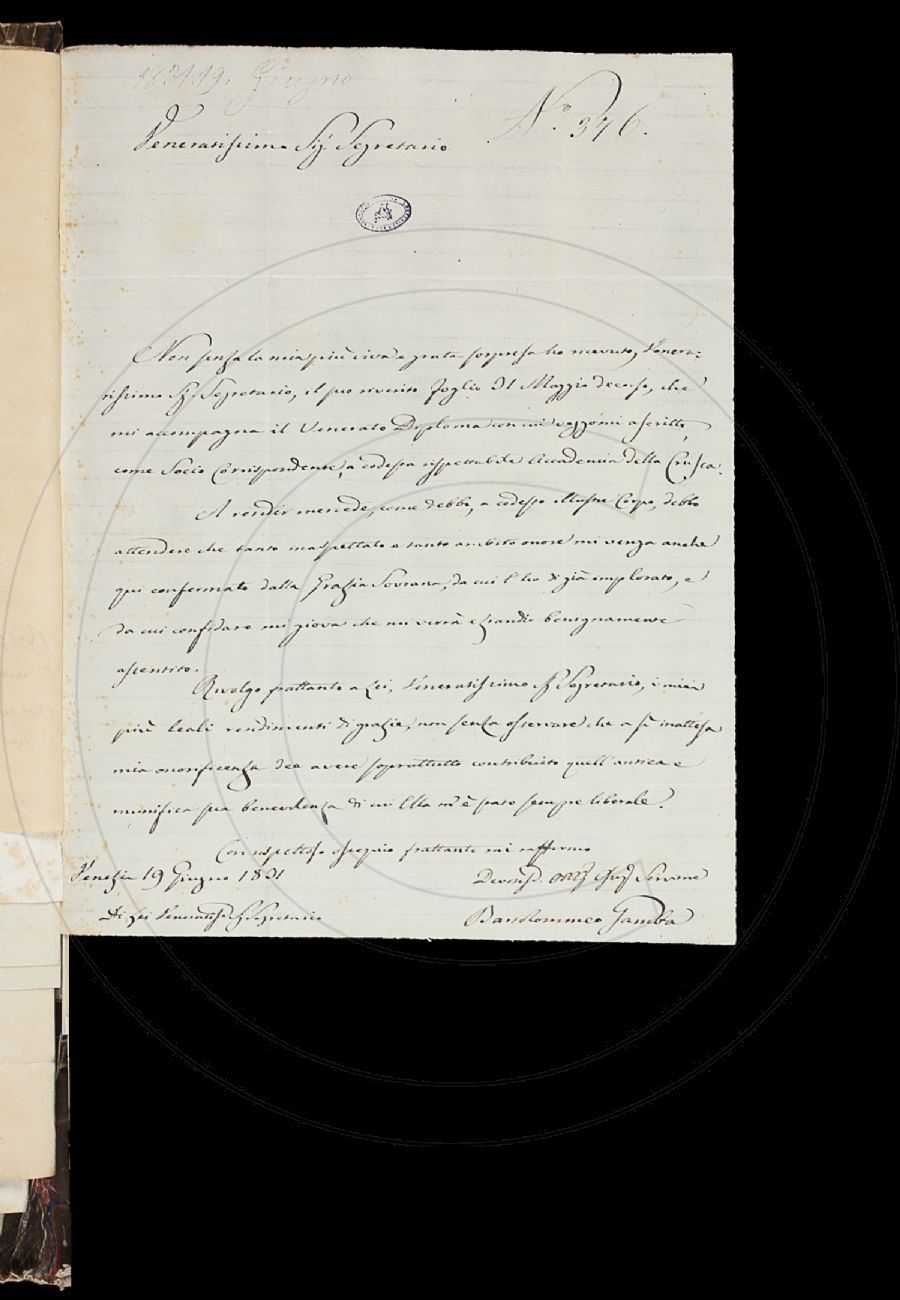 1831. 19. Giugno
N.º 376.
Veneratissimo Sig.r Segretario
Non senza la mia più viva e grata sorpresa ho ricevuto, Venera-
tissimo Sig.r Segretario, il suo riverito foglio 31 Maggio decorso, che
mi accompagna il Venerato Diploma con cui veggomi ascritto,
come Socio Corrispondente, a codesta rispettabile Accademia della Crusca.
A render mercede, come debbo, a codesto illustre Corpo, debbo
attendere che tanto inaspettato e tanto ambito onore mi venga anche
qui confermato dalla Grazia Sovrana, da cui l'ho di già implorato, e
da cui confidare mi giova che mi verrà eziandio benignamente
assentito.
Rivolgo frattanto a Lei, Veneratissimo Sig.r Segretario, i miei
più leali rendimenti di grazie, non senza osservare che a sì inattesa
mia onorificenza dee avere soprattutto contribuito quell'antica e
munifica sua benevolenza di cui Ella m'è stato sempre liberale.
Con rispettoso ossequio frattanto mi raffermo
Venezia 19 Giugno 1831
Di Lei Veneratiss. Sig.r Segretario
Devotiss. Servitore
Bartolommeo Gamba